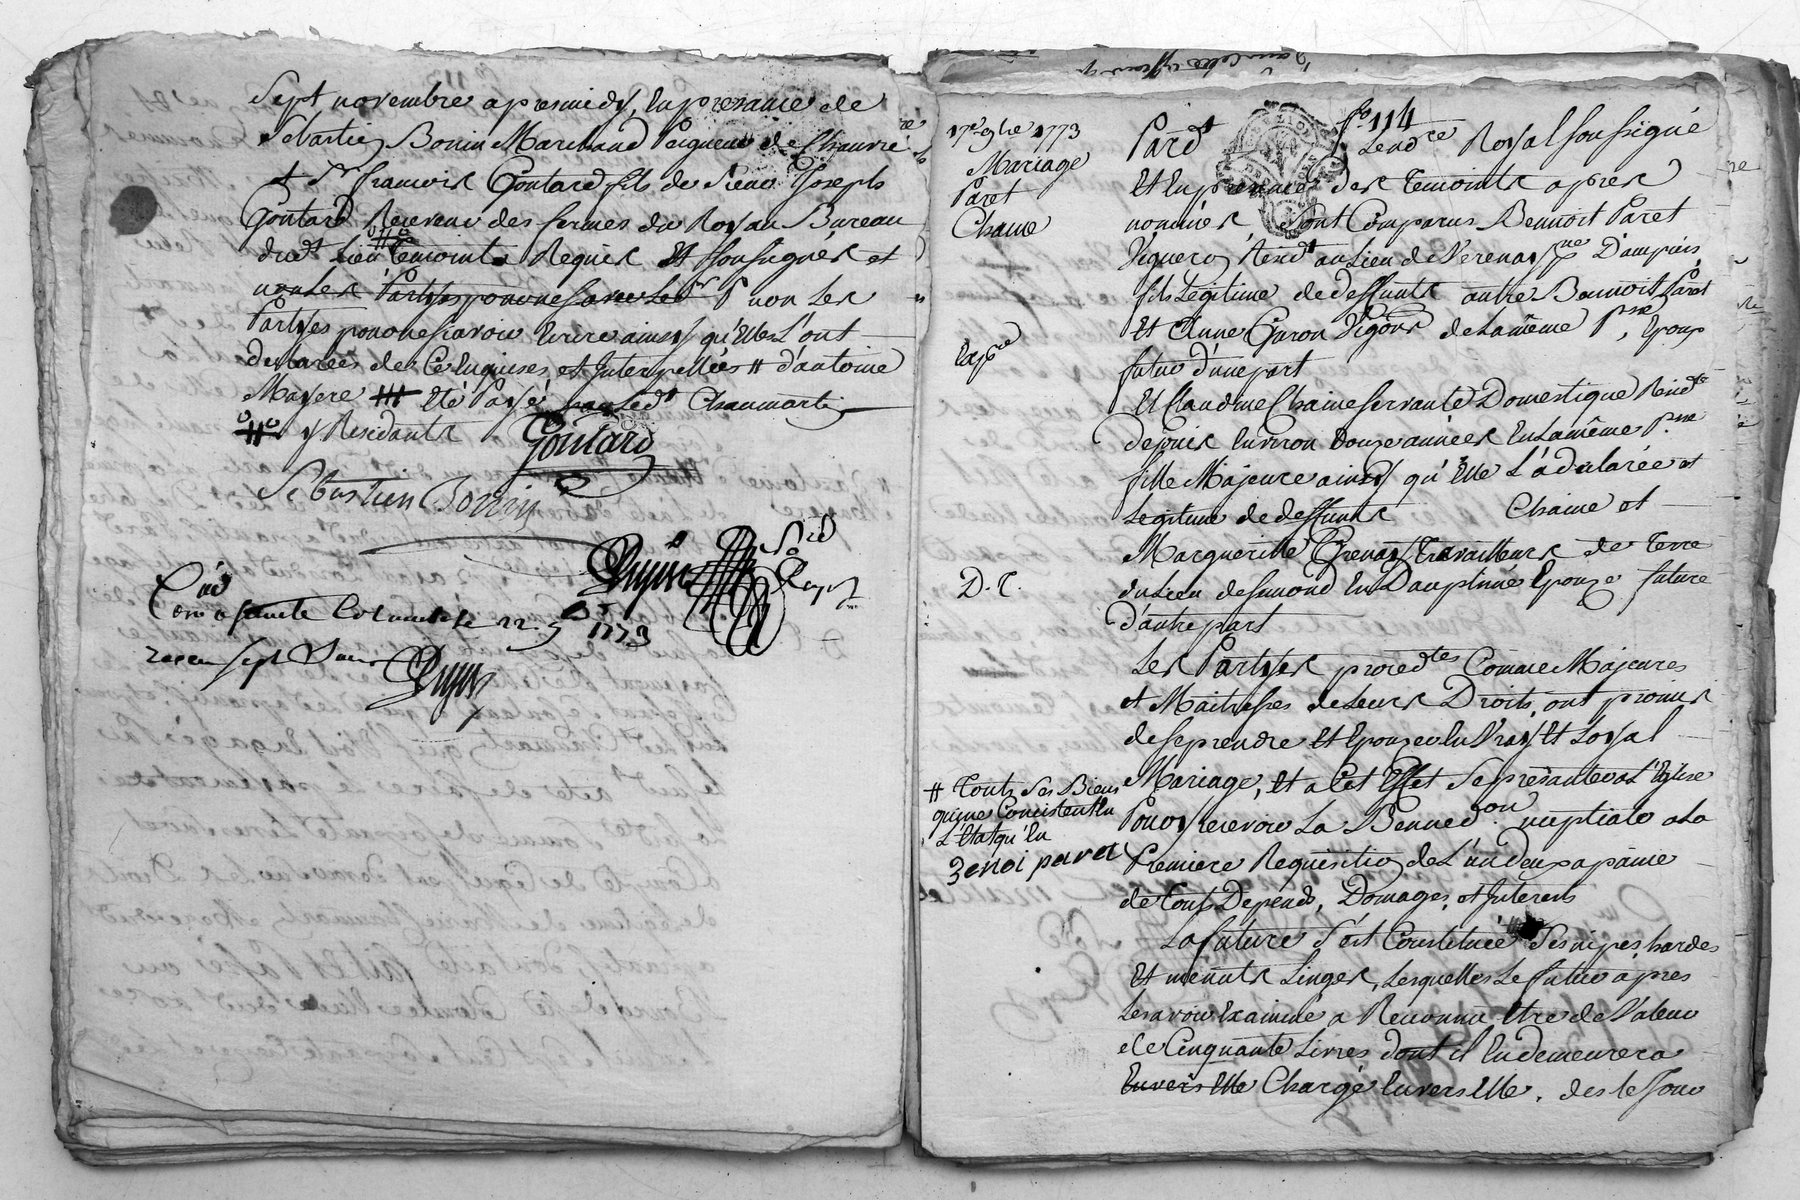 Sept novembre apresmidy, En presence de
Sebastien Bonin Marchand Peigneur de Chauvre
et Sr francois Goutard fils de Sieur Joseph
Goutard Receveur des fermes du Roy au Bureau
dudt Lieu temoints Requis Et soussignés et
non Les Partyes pour ne savoir Led. P non Les
Partyes pour ne scavoir Ecrire ainsy qu'Elles L'ont
declarées de Ce Enquises et Interpellées # d'antoine
Mayere ## Eté Payé par Ledt Chaumartin
# y Residants
Goutard
Sébastien Bonnin
Dujin
Con a sainte Colombe le 22 9bre 1773
receu sept
Dujin
fo 114
17e 9bre 1773
Mariage
Paret
Chaine
Expre
D. C.
# Touts Ses Biens
qui ne Concistent En
L'Etat qu'En
3 enoi paret
Pardt Lendre Royal soussigné
Et En presence des temoints apres
nommés, sont Comparus Bennoit Paret
Vigneron Residt au Lieu de Verenay psse D'ampuis
fils Legitime de deffunts autre Bennoit Paret
Et Anne Garon Vigons de La même psse, Epoux
futur d'une part
Et Claudine Chaine servante Domestique Residte
depuis Environ Douze années En La même psse
fille Majeure ainsy qu'Elle L'a declarée et
Legitime de deffunts Chaine et
Marguerite Grenay travailleurs de terre
du Lieu de semond En Dauphiné Epouze future
d'autre part
Les Partyes procedtes Comme Majeures
et Maitresses de Leurs Droits, ont promis
de se prendre et Epouzer En Vray Et Loyal
Mariage, Et a Cet Effet Se presanter a L'Eglise
Pour y recevoir La Benned.on nuptiale a La
Premiere Requisition de L'un d'eux a paine
de tous Depends, Domages, et Interests
La future S'est Constituée Ses nipes hardes
Et menuts Linges, Lesquelles Le futur apres
Les avoir Examiné a Reconnu Etre de Valeur
de Cinquante Livres dont il En demeurera
Envers Elle Chargé Envers Elle, des Le Jour